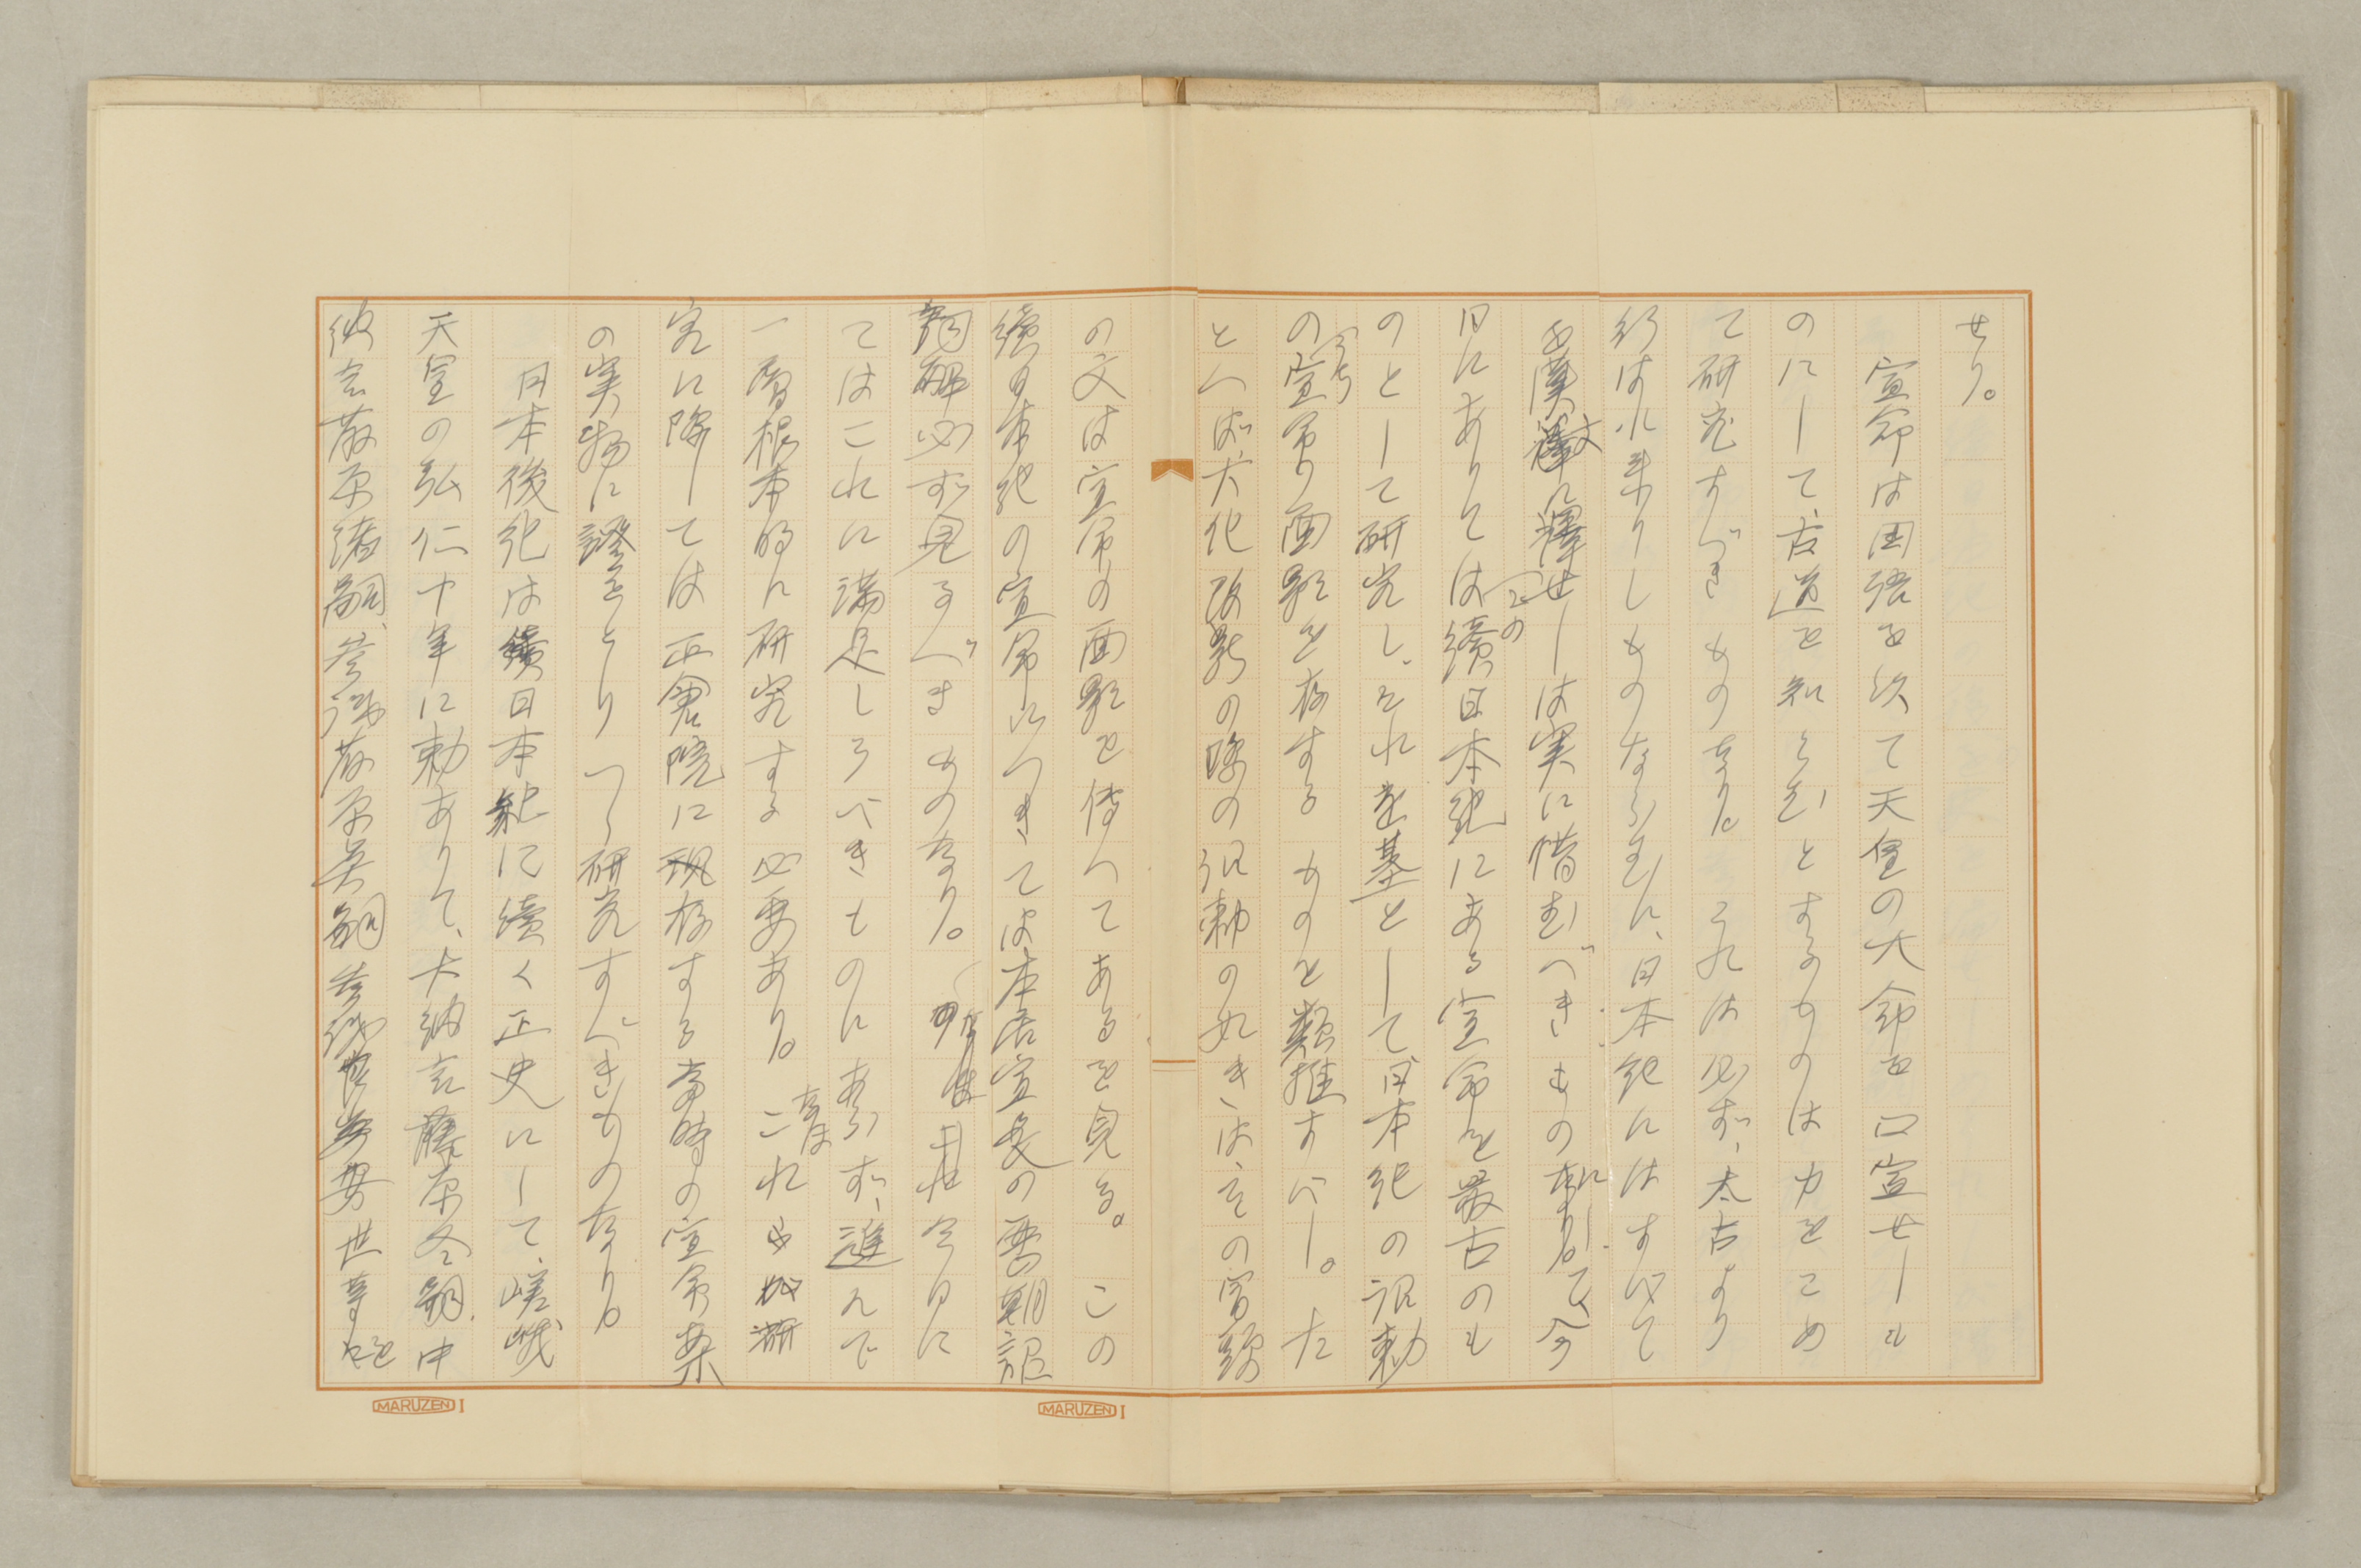 せり。
宣命は国語を以て天皇の大命を口宣せしも
のにして、古道を知らむとするものは力をこめ
て研究すべきものなり。これは必ず、太古より
行はれ来りしものならむに、日本紀にはすべて
を漢文に譯せしは実に惜むべきものにして、今
日にありては續日本紀にある宣命を最古のも
のとして研究し、それを基として日本紀の詔勅
の宣命の面影を存するものを類推すべし。た
とへば、大化改新の際の詔勅の如きは、その冒頭
の文は宣命の面影を傳へてあるを見る。この
續日本紀の宣命につきては本居宣長の歴朝詔
詞解必ず見るべきものなり。今日に
てはこれに満足しうべきものにあらず、進んで
一層根本的に研究する必要あり。これが研
究に際しては正倉院に現存する當時の宣命案
の実物に證をとりつゝ研究すべきものなり。
日本後紀は續日本紀に續く正史にして、嵯峨
天皇の弘仁十年に勅ありて、大納言藤原冬嗣、中
納言藤原緒嗣、参議藤原貞嗣、参議良岑安世等に
MARUZEN I
MARUZEN I